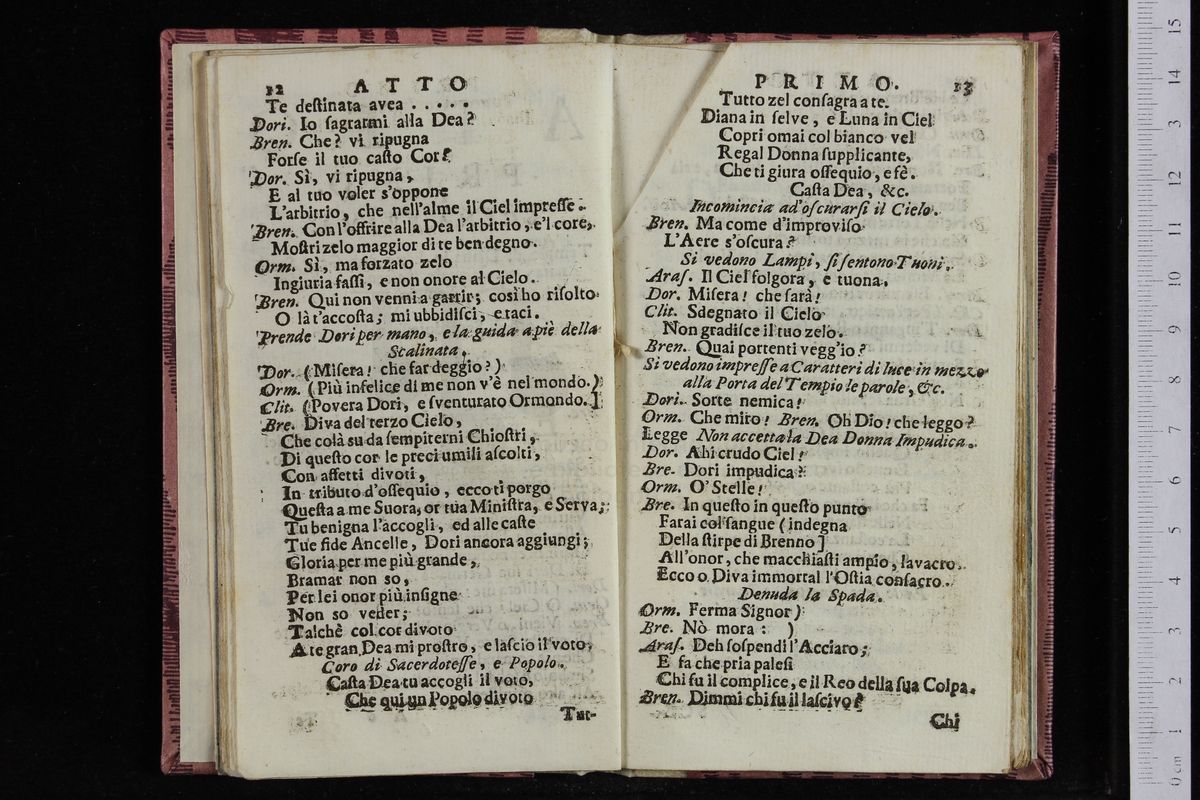 12 ATTO
Te destinata avea . . . . .
Dori. Io sagrarmi alla Dea?
Bren. Che? vi ripugna
Forse il tuo casto Cor?
Dor. Sì, vi ripugna,
E al tuo voler s'oppone
L'arbitrio, che nell'alme il Ciel impresse.
Bren. Con l'offrire alla Dea l'arbitrio, e'l core,
Mostri zelo maggior di te ben degno.
Orm. Sì, ma forzato zelo
Ingiuria fassi, e non onore al Cielo.
Bren. Qui non venni a garrir; così ho risolto
O là t'accosta; mi ubbidisci, e taci.
Prende Dori per mano, e la guida a piè della
Scalinata.
Dor. (Misera! che far deggio?)
Orm. (Più infelice di me non v'è nel mondo.)
Clit. (Povera Dori, e sventurato Ormondo.]
Bre. Diva del terzo Cielo,
Che colà su da sempiterni Chiostri,
Di questo cor le preci umili ascolti,
Con affetti divoti,
In tributo d'ossequio, ecco ti porgo
Questa a me Suora, or tua Ministra, e Serva;
Tu benigna l'accogli, ed alle caste
Tue fide Ancelle, Dori ancora aggiungi;
Gloria per me più grande,
Bramar non so,
Per lei onor più insigne
Non so veder;
Talchè col cor divoto
A te gran Dea mi prostro, e lascio il voto,
Coro di Sacerdotesse, e Popolo.
Casta Dea tu accogli il voto,
Che qui un Popolo divoto
Tut-
PRIMO. 13
Tutto zel consagra a te.
Diana in selve, e Luna in Ciel
Copri omai col bianco vel
Regal Donna supplicante,
Che ti giura ossequio, e fè.
Casta Dea, &c.
Incomincia ad'oscurarsi il Cielo.
Bren. Ma come d'improviso
L'Aere s'oscura?
Si vedono Lampi, si sentono Tuoni.
Aras. Il Ciel folgora, e tuona.
Dor. Misera! che sarà!
Clit. Sdegnato il Cielo
Non gradisce il tuo zelo.
Bren. Quai portenti vegg'io?
Si vedono impresse a Caratteri di luce in mezzo
alla Porta del Tempio le parole, &c.
Dori. Sorte nemica!
Orm. Che miro! Bren. Oh Dio! che leggo?
Legge Non accetta la Dea Donna Impudica.
Dor. Ahi crudo Ciel!
Bre. Dori impudica?
Orm. O' Stelle!
Bre. In questo in questo punto
Farai col sangue (indegna
Della stirpe di Brenno]
All'onor, che macchiasti ampio, lavacro.
Ecco o Diva immortal l'Ostia consacro.
Denuda la Spada.
Orm. Ferma Signor)
Bre. Nò mora: )
Aras. Deh sospendi l'Acciaro;
E fa che pria palesi
Chi fu il complice, e il Reo della sua Colpa.
Bren. Dimmi chi fu il lascivo?
Chi